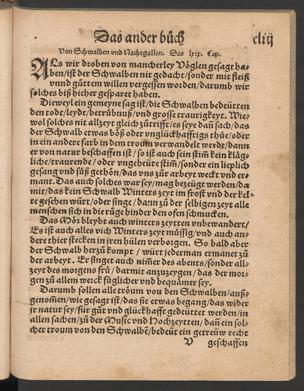 Das ander bůch cliij
Von Schwalben vnd Nachtgallen. Das lxix. Cap.
Als wir droben von mancherley Vöglen gesagt ha-
ben/ist der Schwalben nit gedacht/sonder mit fleiß
vnnd gůttem willen vergessen worden/darumb wir
solches biß hieher gesparet haben.
Dieweyl ein gemeyne sag ist/die Schwalben bedeütten
den todt/leydt/betrübnuß/vnd grosse traurigkeyt. Wie-
wol solches nit allzeyt gleich zůtrifft/es seye dañ sach/das
der Schwalb etwas böß oder vnglückhafftigs thůe/oder
in ein andere farb in dem troum verwandelt werde/dann
er von natur beschaffen ist/so ist auch sein stim̃ kein kläg-
liche/traurende/oder vngeheüre stim̃/sonder ein lieplich
gesang vnd süß gethön/das vns zur arbeyt weckt vnd er-
mant. Das auch solches war sey/mag bezeügt werden/da-
mit/das kein Schwalb Winters zeyt im frost vnd der kel-
te gesehen würt/oder singt/dann zů der selbigen zeyt alle
menschen sich in die růge hinder den ofen schmucken.
Das Mör bleybt auch winters zeytten vnbewandert/
Es ist auch alles vich Winters zeyt müssig/vnd auch an-
dere thier stecken in jren hülen verborgen. So bald aber
der Schwalb herzů kompt/würt jederman ermant zů
der arbeyt. Er singet auch nim̃er des abents/sonder all-
zeyt des morgens frů/darmit anzuzeygen/das der mor-
gen zů allem werck füglicher vnd bequämer sey.
Darumb sollen alle tröum von den Schwalben/auß-
genom̃en/wie gesagt ist/das sie etwas begang/das wider
jr natur sey/für gůt vnd glückhafft gedeüttet werden/in
allen sachen/zů der Music vnd Hochzeytten/dañ ein sol-
cher troum von den Schwalbẽ/bedeüt ein getreüw recht
V geschaffen